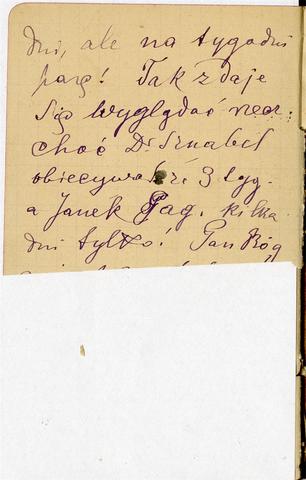 dni, ale na tygodni
parę! Tak zdaje
się wyglądać
choć Dr Sznabel
obiecywał że 3 tyg.
a Janek Gag. kilka
dni tylko! Pan Bóg